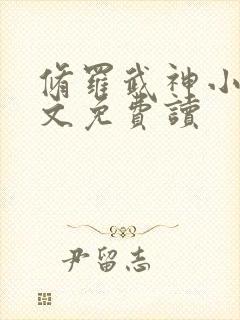 脩羅武神小
文免費讀
尹留志